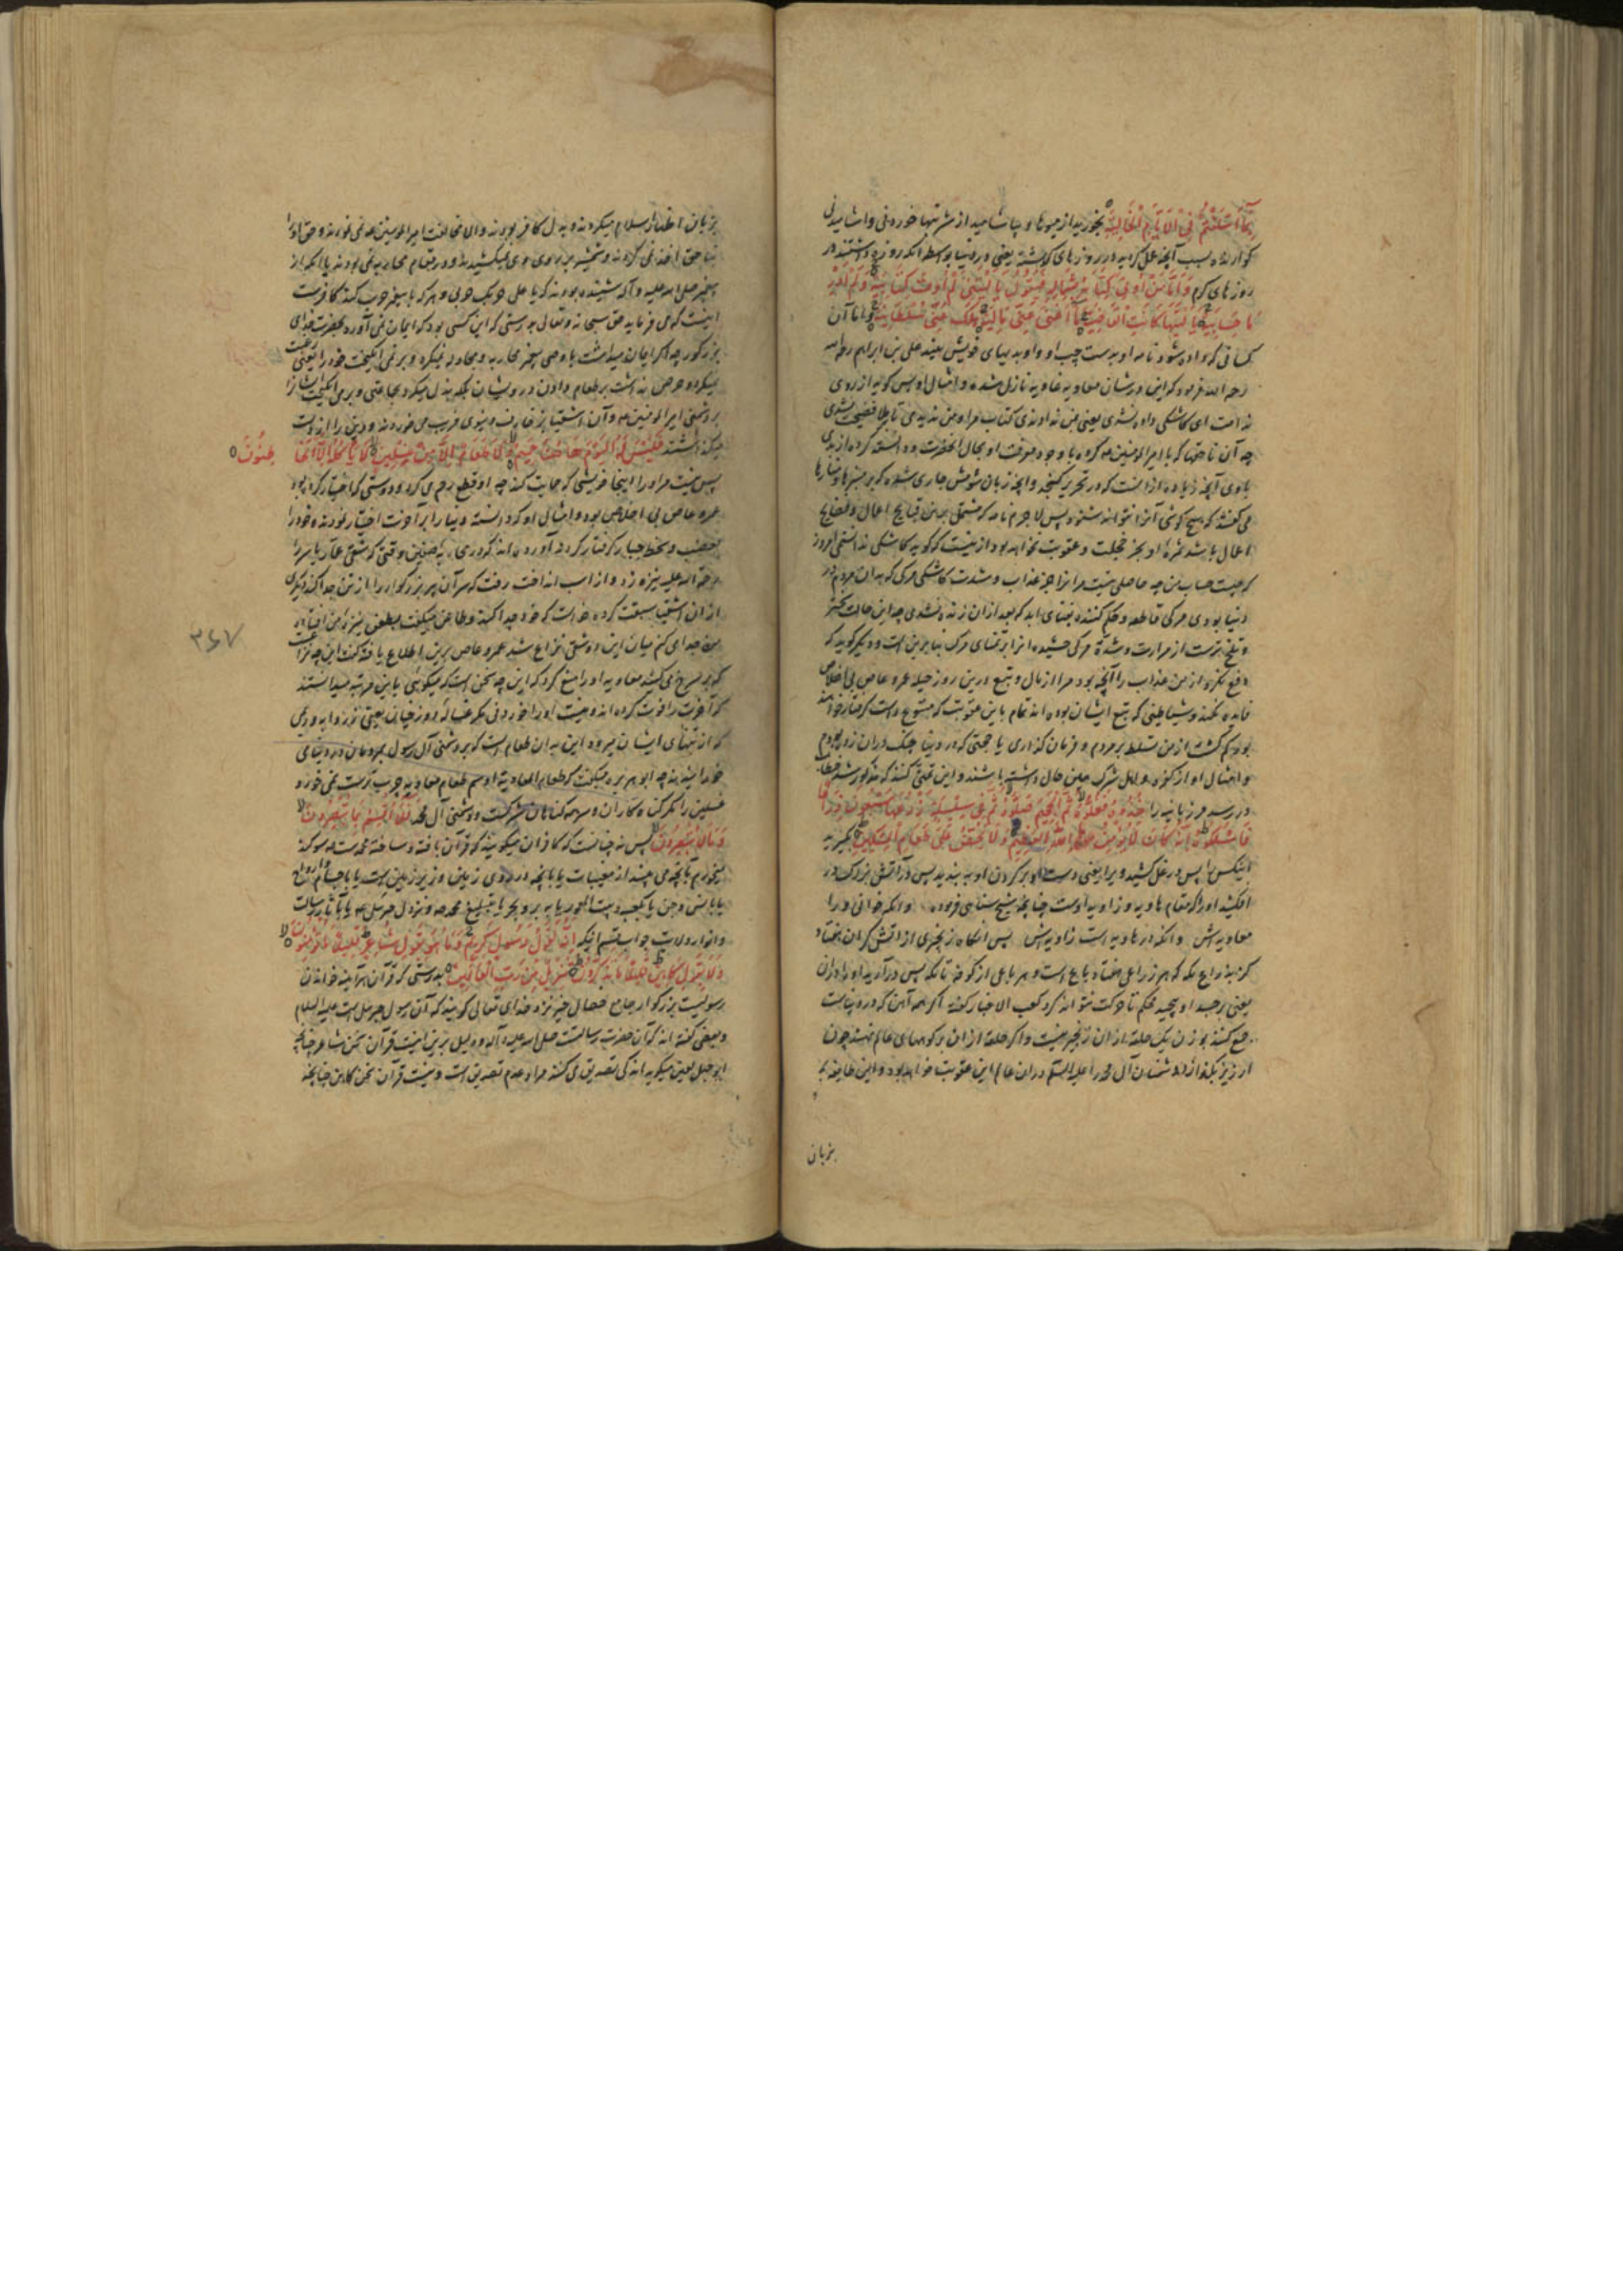 بِمَا أَسْلَفْتُمْ فِي الْأَيَّامِ الْخَالِيَةِ بخورید از میوها و بیاشامید از شربتها خوردنی و اشامیدنی
کوارنده بسبب آنچه عمل کرده‌اید در روزهای کذشته یعنی در دنیا بواسطه آنکه روزه داشتند در
روزهای کرم وَأَمَّا مَنْ أُوتِيَ كِتَابَهُ بِشِمَالِهِ فَيَقُولُ يَا لَيْتَنِي لَمْ أُوتَ كِتَابِيَهْ وَلَمْ أَدْرِ
مَا حِسَابِيَهْ يَا لَيْتَهَا كَانَتِ الْقَاضِيَةَ مَا أَغْنَى عَنِّي مَالِيَهْ هَلَكَ عَنِّي سُلْطَانِيَهْ و اما آن
کسانی که داده شود نامه او بدست چپ او و او بدیهای خویش بیند علی بن ابراهیم رحمه الله
فرمود که این در شان معاویه غاویه نازل شده و امثال او پس کوید از روی
ندامت ای کاشکی داده نشدی یعنی من ندادندی کتاب مرا و من ندیدمی تا بلا فضیحت نشدی
چه آن ناحقها که با امیرالمؤمنین کرده با وجود معرفت او بحال آنحضرت
با وی آنچه زیاده از آنست که در تحریر کنجد و آنچه زبان شومش جاری شده که بر منبرها
می کفتند که هیچ کوشی آنرا نتواند شنود پس لاجرم نامه که مشتمل بر این قبایح اعمال و فضایح
اعمال باشد ثمره او بجز خجلت و عقوبت نخواهد بود از ینست که کوید کاشکی ندانستمی امروز
که چیست حساب من چه حاصلی نیست مرا بجز عذاب و شدت کاشکی مرکی که بدان مردم در
دنیا بودی مرکی قاطعه و حکم کننده بفنای ابد که بعد از ان زنده نشدی چه این حالت
و تلخ ترست از مرارت و شدة مرکی چشیده انرا تمنای مرک بنابرین است و دیکر کوید که
دفع نکرد از من عذاب را آنچه بود مرا از مال و تبع درین روز حیله عمرو عاص بی اخلاص
فایده نکند و شیاطینی که تبع ایشان بوده‌اند تمام باین عقوبت که متبوع است کرفتار خواهند
بود کم کشت از من تسلط بر مردم و فرمان کذاری یا حجتی که در دنیا چنک در ان زده بودم
و امثال او از کفره و اهل شرک همین حال داشته باشند و این تمنی کنند که مذکور شد خطاب
در رسد مر زبانیه را خُذُوهُ فَغُلُّوهُ ثُمَّ الْجَحِيمَ صَلُّوهُ ثُمَّ فِي سِلْسِلَةٍ ذَرْعُهَا سَبْعُونَ ذِرَاعًا
فَاسْلُكُوهُ إِنَّهُ كَانَ لَا يُؤْمِنُ بِاللَّهِ الْعَظِيمِ وَلَا يَحُضُّ عَلَى طَعَامِ الْمِسْكِينِ بکیرید
اینکس را پس در غل کشید ویرا یعنی دست او بر کردن او بندید پس در آتش بزرک در
افکنید او را که مقام هاویه و زاویه اوست چنانچه شیخ سنائی فرموده وانکه خوانی ورا
معاویه‌اش وانکه در هاویه است زاویه‌ش پس انکاه زنجیری از اتش کران هفتاد
کز بذراع ملکه که هر ذراعی هفتاد باع است و هر باعی از کوفه تا مکه پس درآرید او را در ان
یعنی بر جسد او پیچید محکم تا حرکت نتواند کرد کعب الاخبار کفته اکر همه آهن که در دنیاست
جمع کنند بوزن یک حلقه از ان زنجیر نیست و اکر حلقه از ان بر کوههای عالم نهند چون
ارزیز بکدازد دشمنان آل محمد را علیه السلم در ان عالم این عقوبت خواهد بود و این طایفه
بزبان
بزبان اظهار اسلام میکردند و بدل کافر بودند والا مخالفت امیرالمؤمنین نمی نمودند و حق او را
بناحق اخذ نمی کردند و شمشیر بر روی وی نمیکشیدند و در مقام محاربه نمی بودند با آنکه از
پیغمبر صلی الله علیه و آله شنیده بودند که یا علی حربک حربی و هر که با پیغمبر حرب کند کافرست
اینست که می فرماید حق سبحانه و تعالی بدرستی که این کسی بود که ایمان نمی آورد بحضرت خدای
بزرکوار چه اکر ایمان میداشت با وصی پیغمبر محاربه و مجادله نمیکرد و بر نمی انکیخت خود را یعنی رغبت
نمیکرد و حرص نداشت بر طعام دادن درویشان بلکه بذل میکرد بجماعتی و برمی انکیخت ایشانرا
بر دشمنی امیرالمؤمنین و آن اشقیا بزخارف دنیوی فریب می خوردند و دین را از دست
میکذاشتند فَلَيْسَ لَهُ الْيَوْمَ هَاهُنَا حَمِيمٌ وَلَا طَعَامٌ إِلَّا مِنْ غِسْلِينٍ لَا يَأْكُلُهُ إِلَّا
پس نیست مر او را اینجا خویشی که حمایت کند چه او قطع رحم می کرد و دوستی که اختیار کرده بود
عمرو عاص بی اخلاص بود و امثال او که دانسته دنیا را بر آخرت اختیار نمودند و خود را
بغضب و سخط جبار کرفتار کردند آورده‌اند که در محاربه صفین وقتی که شقی عمار یاسر را
رحمة الله علیه نیزه زد و از اسب انداخت رفت که سر آن پیر بزرکوار را از تن جدا کند دیکری
از ان اشقیا سبقت کرده خواست که خود جدا کند و طاعن میکفت بطعن نیزه من افتاده
من جدا می کنم میان این دو شقی نزاع شد عمرو عاص برین اطلاع یافته کفت این چه نزاعست
که بر سر دوزخ می کنید معاویه او را منع کرد که این چه سخن است که میکوئی باین مرتبه میدانستند
که آخرت را فوت کرده‌اند و نیست او را خوردنی مکر غساله دوزخیان یعنی زردابه و ریمی
که از تنهای ایشان میرود این بدان طعام است که بر دشمنی آل رسول بمردمان در دنیا می
خورانیدند چه ابوهریره میکفت که طعام المعاویة ادسم طعام معاویه چرب ترست نمی خورد
غسلین را مکر کناه کاران و سر همه کناهان شرکست و دشمنی آل محمد فَلَا أُقْسِمُ بِمَا تُبْصِرُونَ
وَمَا لَا تُبْصِرُونَ پس نه چنانست که کافران میکویند که قرآن بافته و ساخته محمدست سوکند
میخورم بآنچه می بینید از مغیبات یا بآنچه در روی زمین و زیر زمین است یا باجسام و ارواح
یا بانس و جن یا بکعبه و بیت المعمور یا ببر و بحر یا بتبلیغ محمد و نزول جبرئیل یا بآثار رسالت
و انوار ولایت جواب قسم اینکه إِنَّهُ لَقَوْلُ رَسُولٍ كَرِيمٍ وَمَا هُوَ بِقَوْلِ شَاعِرٍ قَلِيلًا مَا تُؤْمِنُونَ
وَلَا بِقَوْلِ كَاهِنٍ قَلِيلًا مَا تَذَكَّرُونَ تَنْزِيلٌ مِنْ رَبِّ الْعَالَمِينَ بدرستی که قرآن هرآینه خواندن
رسولیست بزرکوار جامع خصال خیر نزد خدای تعالی کویند که آن رسول جبرئیل است علیه السلام
و بعضی کفته‌اند که آن حضرت رسالت صلی الله علیه و آله و دلیل برین نیست قرآن سخن شاعر چنانچه
ابوجهل لعین میکوید اندکی تصدیق می کنند مراد عدم تصدیق است و نیست قرآن سخن کاهن چنانچه
۳۶۷